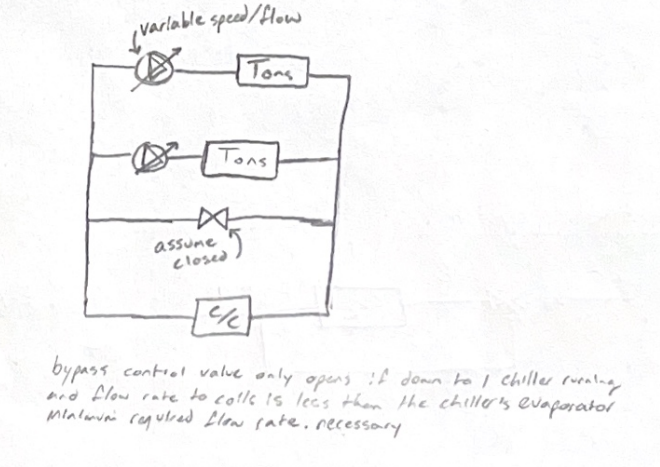 variable speed/flow
Tons
Tons
assume
closed
c/c
bypass control value only opens if down to 1 chiller running
and flow rate to coils is less than the chiller's evaporator
minimum required flow rate. necessary